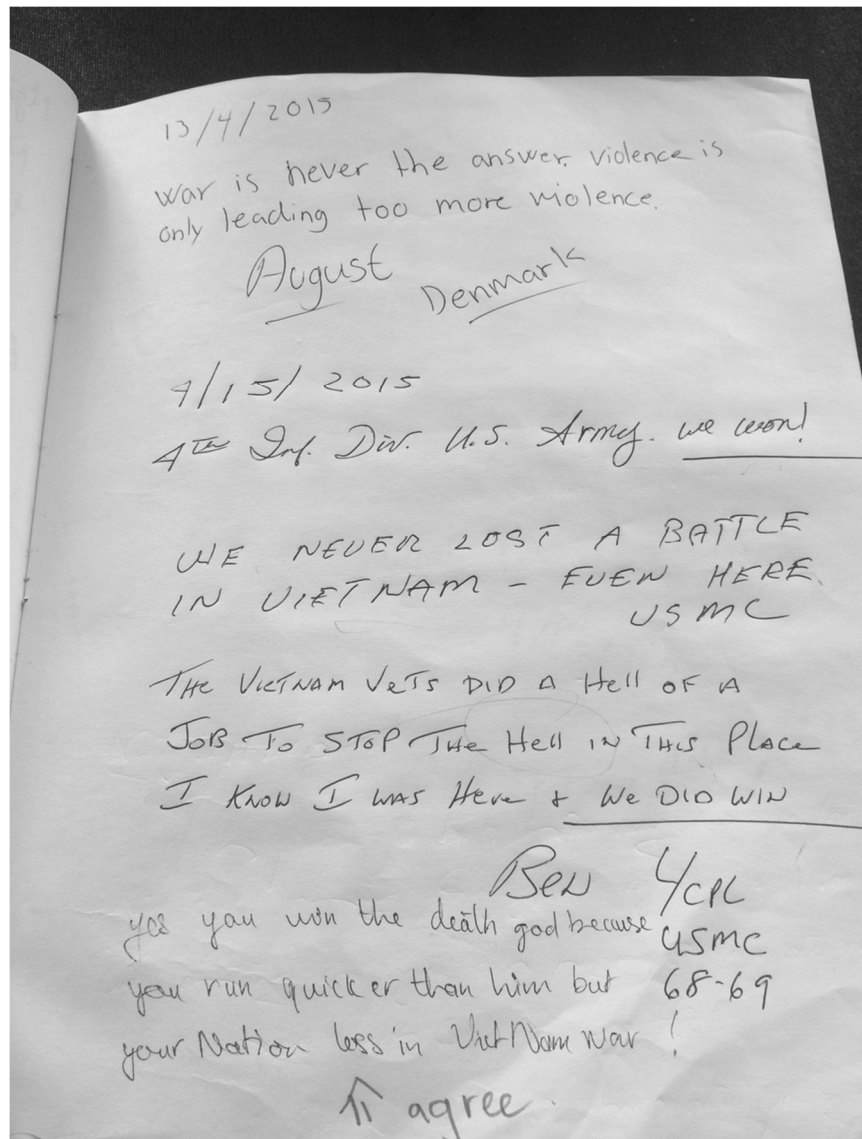 13/4/2015
war is never the answer. violence is
only leading too more violence.
August Denmark
4/15/2015
4TH Inf. Div. U.S. Army. we won!
WE NEVER LOST A BATTLE
IN VIETNAM – EVEN HERE.
USMC
THE VIETNAM VETS DID A Hell OF A
JOB TO STOP THE Hell IN THIS PLACE
I KNOW I WAS Here + We DID WIN
Ben L/CPL
USMC
68-69
yes you win the death god because
you run quicker than him but
your Nation loss in Viet Nam war!
⇑ agree.